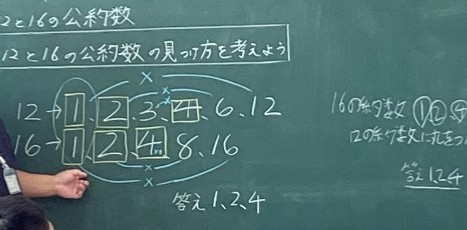 2と16の公約数
12と16の公約数の見つけ方を考えよう
12→1、2、3、4、6、12
16→1、2、4、8、16
答え1、2、4
16の約数①②④
12の約数に丸をつ
答え1、2、4